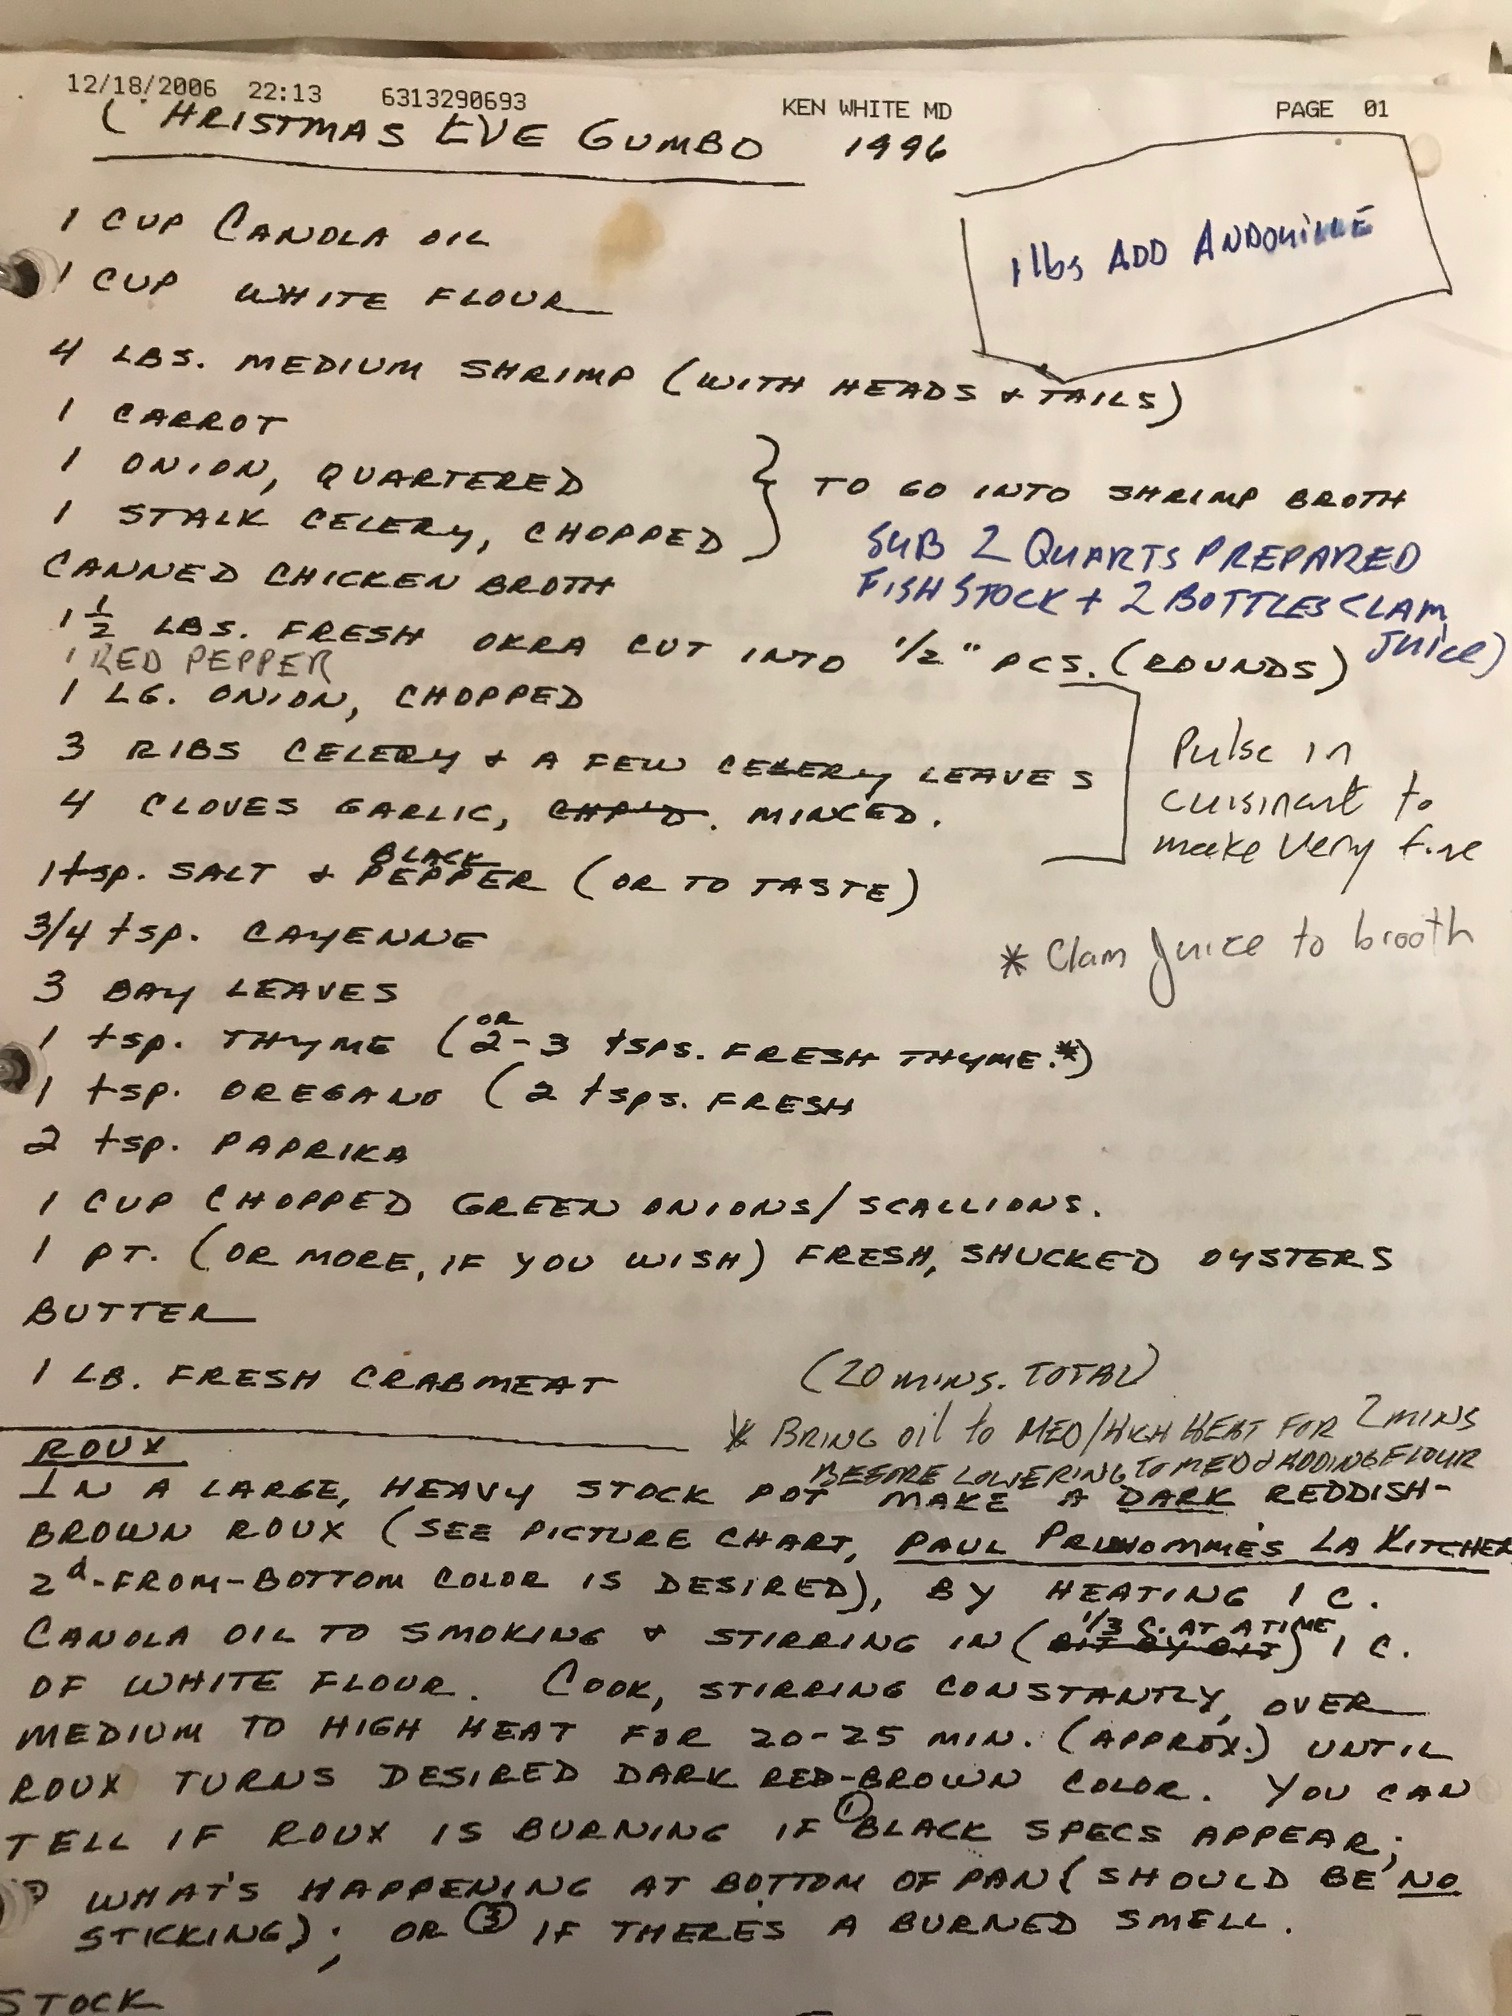 12/18/2006 22:13 6313290693 KEN WHITE MD PAGE 01
CHRISTMAS EVE GUMBO 1996
1 lbs ADD ANDOUILLE
1 CUP CANOLA OIL
1 CUP WHITE FLOUR
4 LBS. MEDIUM SHRIMP (WITH HEADS & TAILS)
1 CARROT
1 ONION, QUARTERED
1 STALK CELERY, CHOPPED
} TO GO INTO SHRIMP BROTH
SUB 2 QUARTS PREPARED
FISH STOCK + 2 BOTTLES CLAM
JUICE)
CANNED CHICKEN BROTH
1 1/2 LBS. FRESH OKRA CUT INTO 1/2" PCS. (ROUNDS)
1 RED PEPPER
1 LG. ONION, CHOPPED
3 RIBS CELERY & A FEW CELERY LEAVES
4 CLOVES GARLIC, CHP'D. MINCED.
Pulse in
cuisinart to
make very fine
1 tsp. SALT & BLACK PEPPER (OR TO TASTE)
3/4 tsp. CAYENNE
* Clam Juice to brooth
3 BAY LEAVES
1 tsp. THYME (OR 2-3 tsps. FRESH THYME.*)
1 tsp. OREGANO (2 tsps. FRESH
2 tsp. PAPRIKA
1 CUP CHOPPED GREEN ONIONS/SCALLIONS.
1 PT. (OR MORE, IF YOU WISH) FRESH, SHUCKED OYSTERS
BUTTER
1 LB. FRESH CRABMEAT
(20 MINS. TOTAL)
* BRING OIL to MED/HIGH HEAT FOR 2 MINS
BEFORE LOWERING TO MED & ADDING FLOUR
ROUX
IN A LARGE, HEAVY STOCK POT MAKE A DARK REDDISH-
BROWN ROUX (SEE PICTURE CHART, PAUL PRUHOMME'S LA KITCHEN
2d-FROM-BOTTOM COLOR IS DESIRED), BY HEATING 1 C.
CANOLA OIL TO SMOKING & STIRRING IN (BIT BY BIT 1/3 C. AT A TIME) 1 C.
OF WHITE FLOUR. COOK, STIRRING CONSTANTLY, OVER
MEDIUM TO HIGH HEAT FOR 20-25 MIN. (APPROX.) UNTIL
ROUX TURNS DESIRED DARK RED-BROWN COLOR. YOU CAN
TELL IF ROUX IS BURNING IF ① BLACK SPECS APPEAR;
WHAT'S HAPPENING AT BOTTOM OF PAN (SHOULD BE NO
STICKING); OR ③ IF THERE'S A BURNED SMELL.
STOCK